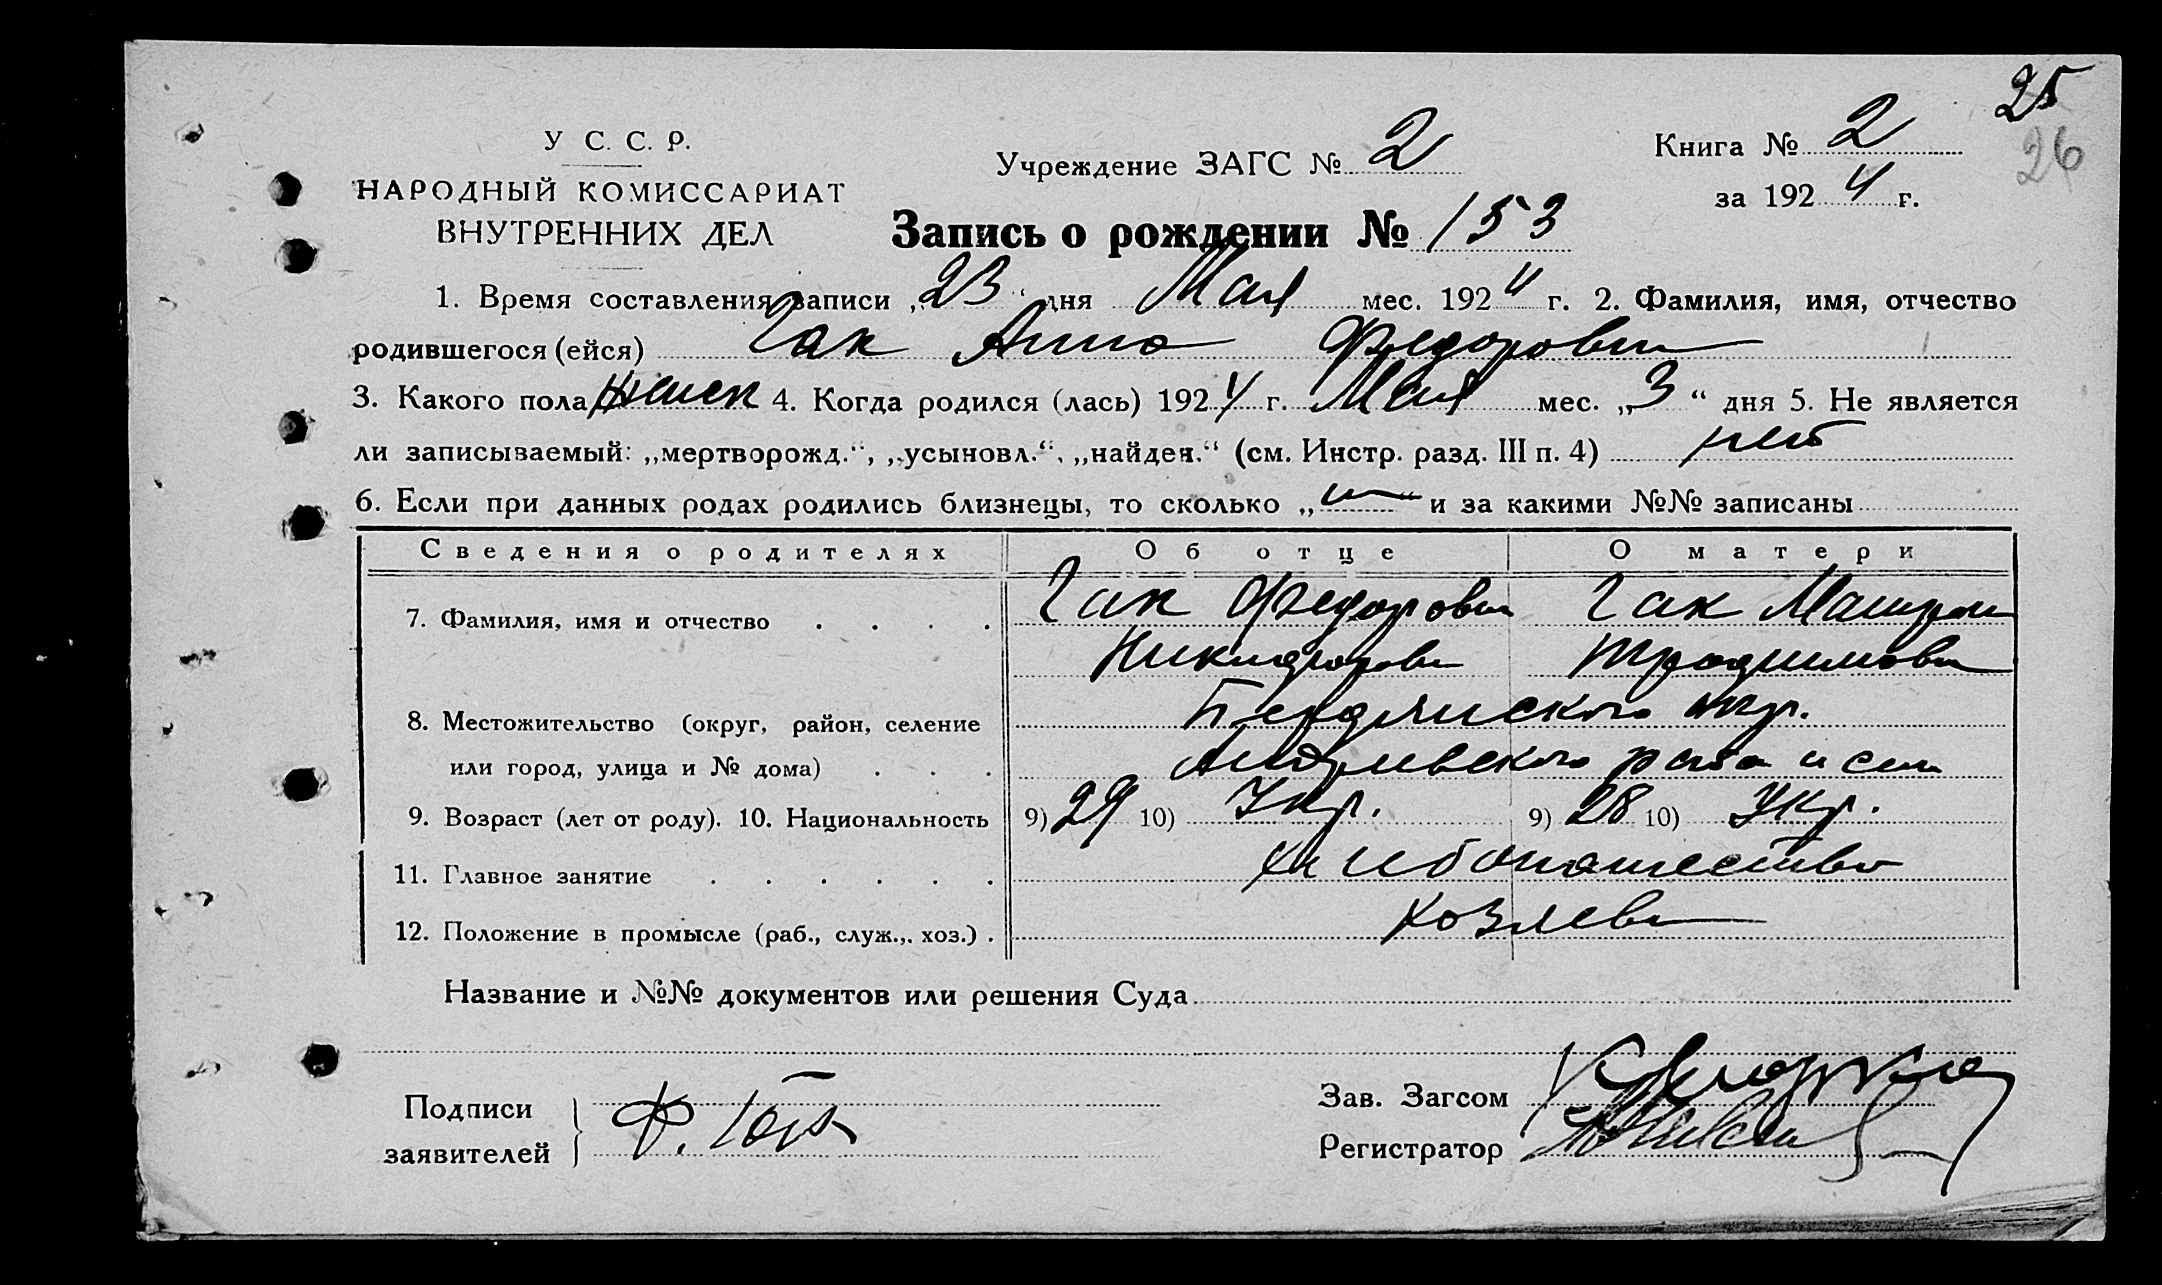 25
26
У С. С. Р.
НАРОДНЫЙ КОМИССАРИАТ
ВНУТРЕННИХ ДЕЛ
Учреждение ЗАГС № 2
Книга № 2
за 1924 г.
Запись о рождении № 153
1. Время составления записи „23“ дня Мая мес. 1924 г. 2. Фамилия, имя, отчество
родившегося (ейся) Гак Анна Федоровн
3. Какого пола женск 4. Когда родился (лась) 1924 г. Мая мес. „3“ дня 5. Не является
ли записываемый: „мертворожд.“, „усыновл.“, „найден.“ (см. Инстр. разд. III п. 4) нет
6. Если при данных родах родились близнецы, то сколько „ “ и за какими №№ записаны
Сведения о родителях Об отце О матери
7. Фамилия, имя и отчество Гак Федор Гак
Никифоров
8. Местожительство (округ, район, селение Бердянского окр.
или город, улица и № дома) района и села
9. Возраст (лет от роду). 10. Национальность 9) 29 10) Укр. 9) 28 10) Укр.
11. Главное занятие хлебопашество
12. Положение в промысле (раб., служ., хоз.)
Название и №№ документов или решения Суда
Подписи
заявителей } Ф. Гак
Зав. Загсом
Регистратор